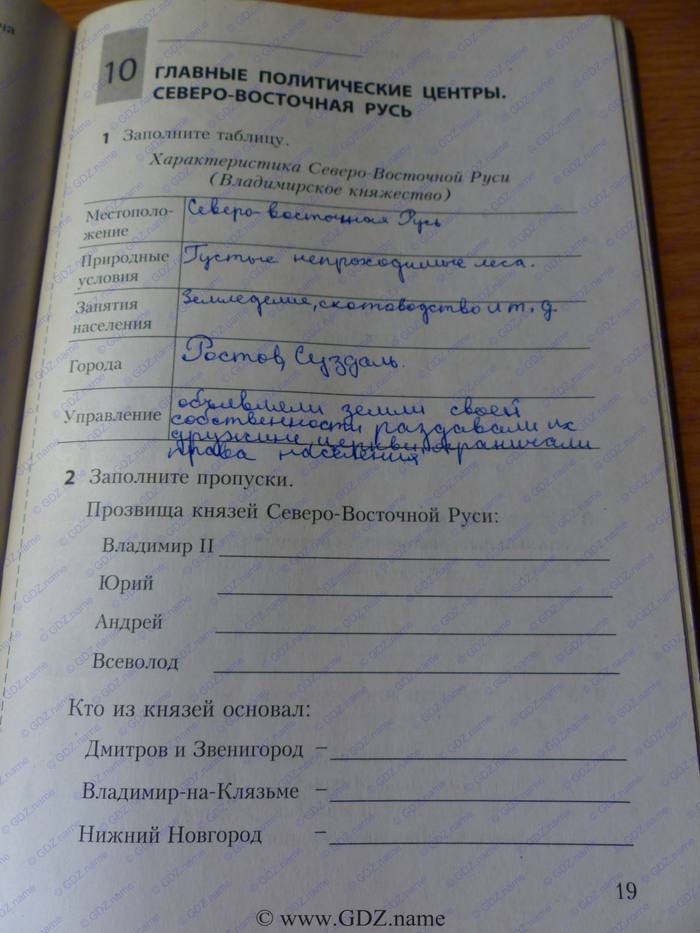 10 ГЛАВНЫЕ ПОЛИТИЧЕСКИЕ ЦЕНТРЫ.
СЕВЕРО-ВОСТОЧНАЯ РУСЬ
1 Заполните таблицу.
Характеристика Северо-Восточной Руси
(Владимирское княжество)
Местополо-
жение
Северо-восточная Русь
Природные
условия
Густые непроходимые леса.
Занятия
населения
Земледелие, скотоводство и т. д.
Города
Ростов, Суздаль.
Управление
объявляли земли своей
собственности раздавали их
дружине, церкви ограничали
права населения
2 Заполните пропуски.
Прозвища князей Северо-Восточной Руси:
Владимир II
Юрий
Андрей
Всеволод
Кто из князей основал:
Дмитров и Звенигород –
Владимир-на-Клязьме –
Нижний Новгород –
19
© www.GDZ.name